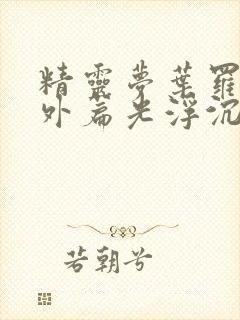 精靈夢葉羅
外扁光浮沉
若朝兮